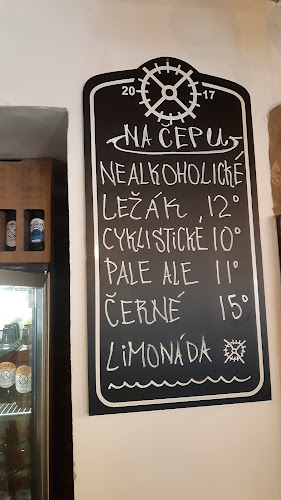 20 17
NA ČEPU
NEALKOHOLICKÉ
LEŽÁK 12°
CYKLISTICKÉ 10°
PALE ALE 11°
ČERNÉ 15°
LIMONÁDA